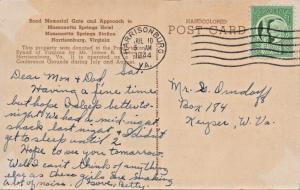 Bond Memorial Gate and Approach to
Massanetta Springs Hotel
Massanetta Springs Station
Harrisonburg, Virginia
This property was donated to the
Synod of Virginia by Mr. James R.
Harrisonburg, Va. It is operated as a
Conference Grounds during July and August
HANDCOLORED
POST CARD
HARRISONBURG
JUL 10
5 AM
1944
VA.
Sat.
Dear Mom & Dad,
Having a fine time
but hope I sleep better to-
night. We had a midnight
snack last night & I didn't
get to sleep until 2
Hope to see you tomorrow.
Well I can't think of any thing
else as these girls are making
a lot of noise. Love, Betty.
Mr. G. Orndorff
Box 184
Keyser, W. Va.